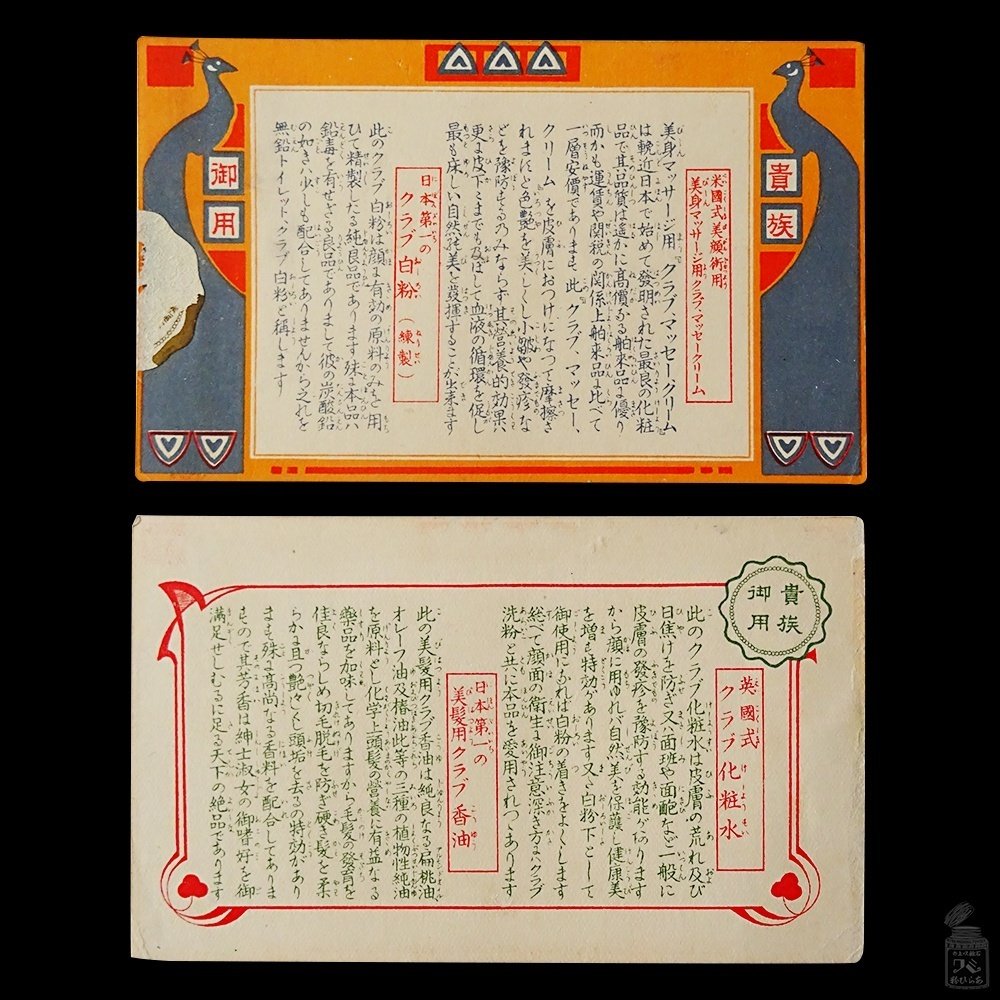 貴族
御用
米國式美顔術用
美身マッサージ用クラブ、マッセークリーム
美身マッサージ用クラブ、マッセークリーム
は輓近日本で始めて發明された最良の化粧
品で其品質は遥かに高價なる舶来品に優り
而かも運賃や関税の関係上舶来品に比べて
一層安價であります、此クラブ、マッセー、
クリームを皮膚におつけになって摩擦さ
れまほど色艷を美しくし小皺や發疹な
どを豫防するのみならず其営養的効果ハ
更に皮下にまでも及ぼして血液の循環を促し
最も床しい自然的美を發揮することが出来ます
日本第一の
クラブ白粉(練製)
此のクラブ白粉は顔に有効の原料のみを用
ひて精製したる純良品であります殊に本品ハ
鉛毒を有せざる良品でありまして彼の炭酸鉛
の如きハ少しも配合してありませんから之れを
無鉛トイレット、クラブ白粉と稱します
貴族
御用
英國式
クラブ化粧水
此のクラブ化粧水は皮膚の荒れ及び
日焦けを防ぎ又ハ面斑や面皰など一般に
皮膚の發疹を豫防する効能がありま
から顔に用ゆれバ自然美を保護し健康美
を増す特効があります又さ白粉下として
御使用になれば白粉の着きをよくします
総べて顔面の衛生に御注意深き方々ハクラブ
洗粉と共に本品を愛用されつゝあります
日本第一の
美髮用クラブ香油
此の美髮用クラブ香油は純良なる扁桃油
オレーフ油及椿油此等の三種の植物性純油
を原料とし化学上頭髮の営養に有益なる
藥品を加味してありますから毛髮の發育を
佳良ならしめ切毛脱毛を防ぎ硬き髮を柔
らかに且つ艷々しくし頭垢を去るの特効があり
ます殊に高尚なる香料を配合してありま
すので其芳香は紳士淑女の御嗜好を御
満足せしむるに足る天下の絶品であります